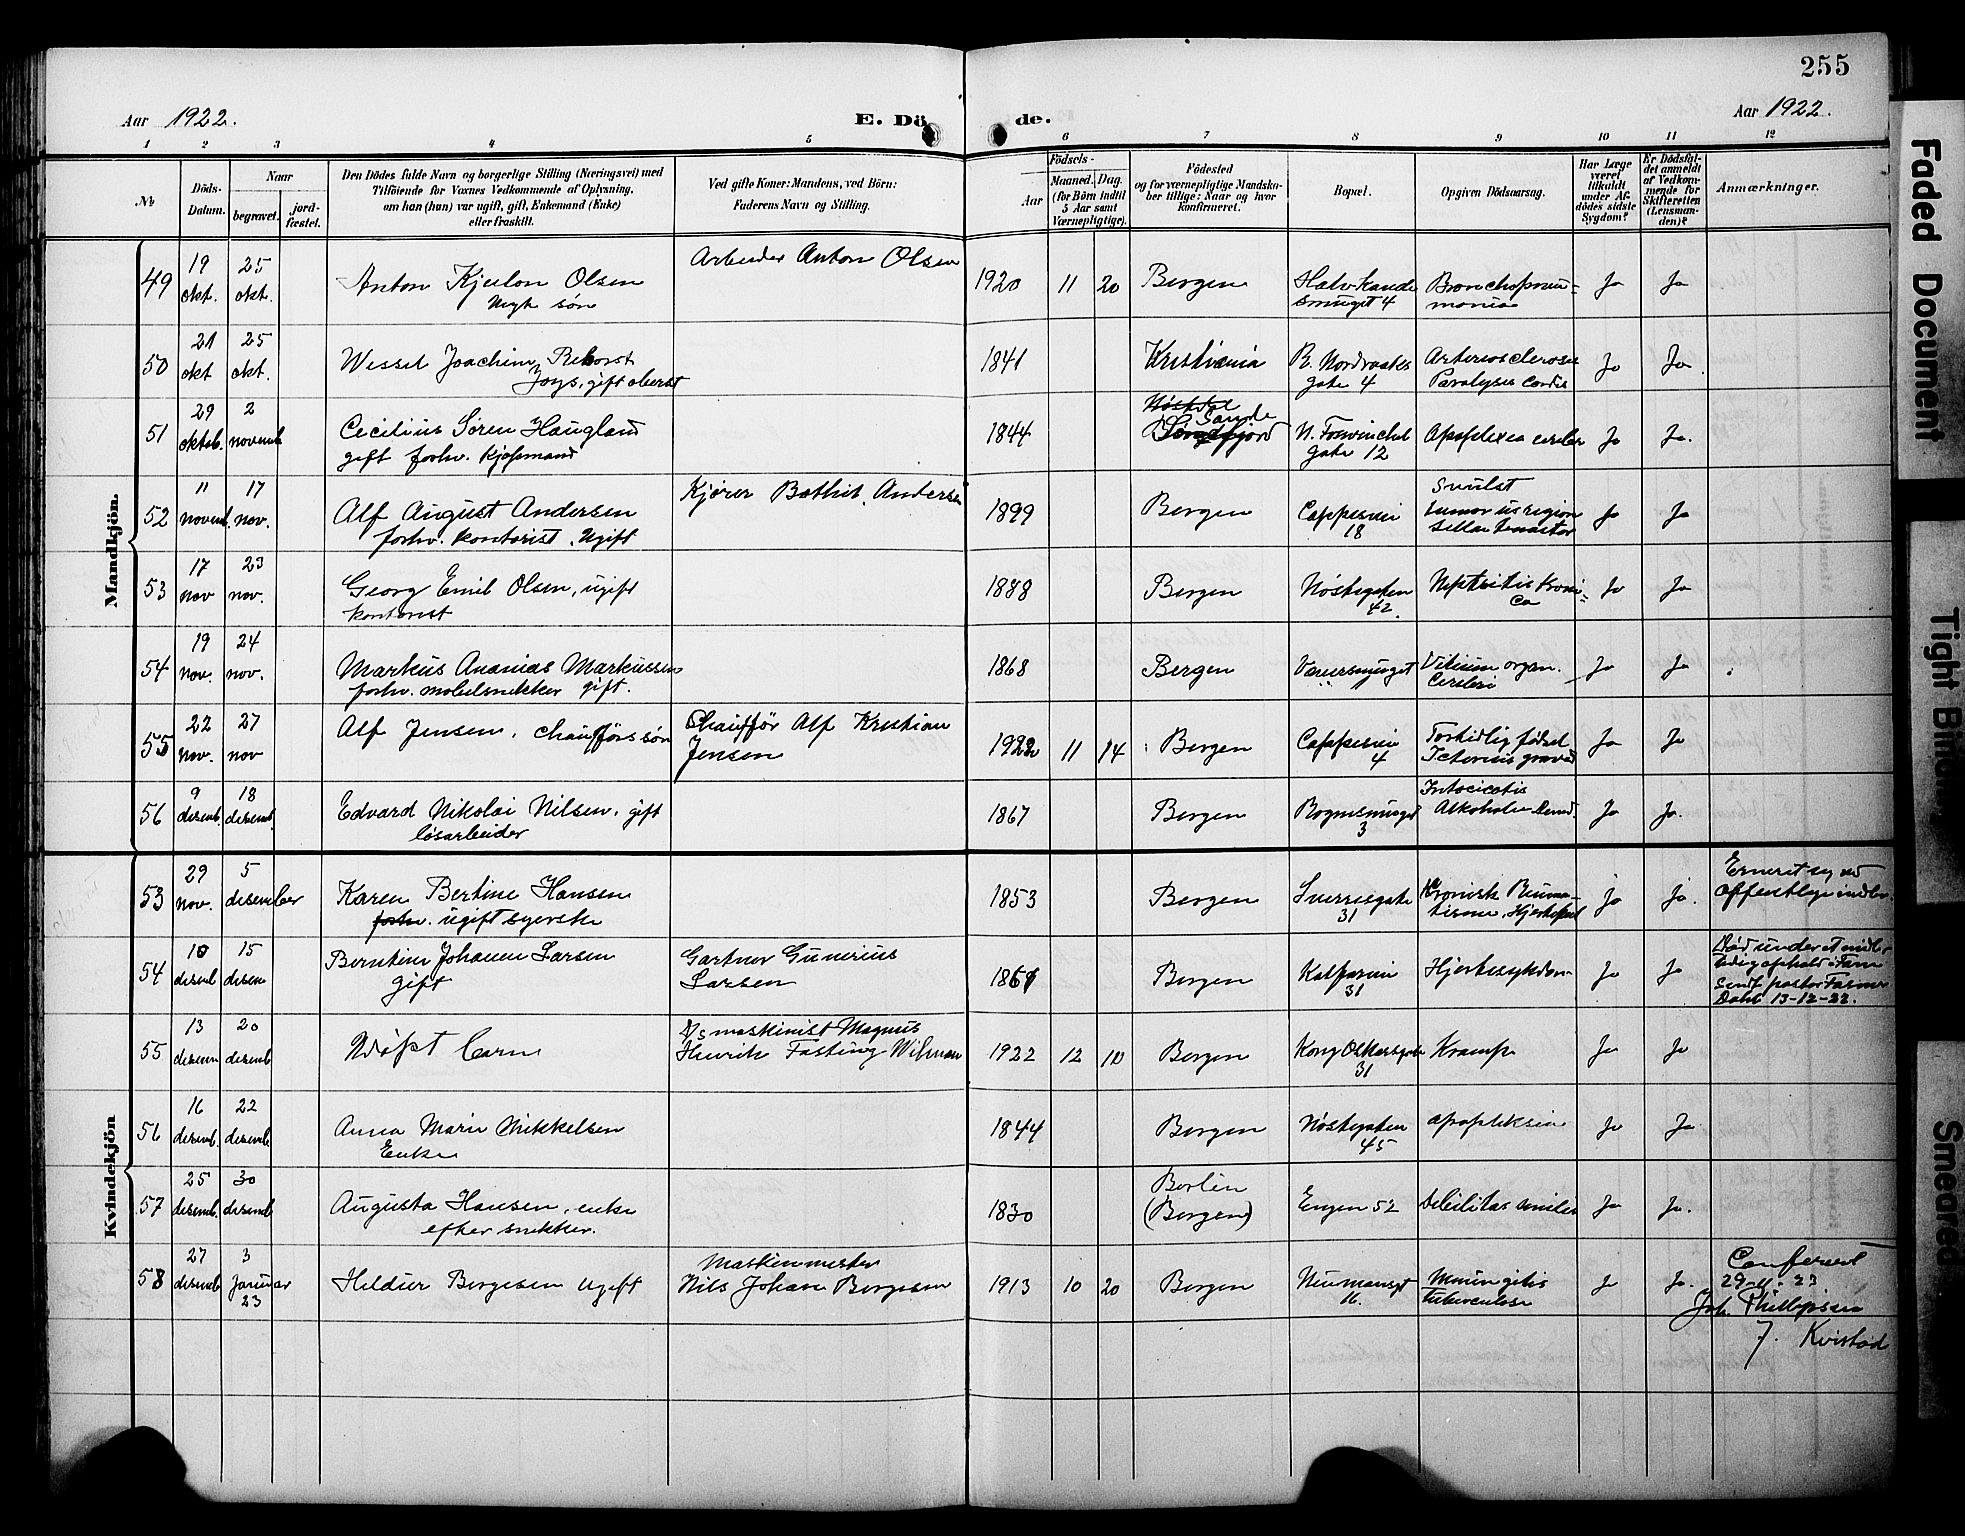 255
Aar 1922.
E. Dö de.
Aar 1922.
1 2 3 4 5 6 7 8 9 10 11 12
№
Döds-Datum.
Naar
begravet.
jord-fæstet.
Den Dödes fulde Navn og borgerlige Stilling (Næringsvei) med
Tilföiende for Voxnes Vedkommende af Oplysning,
om han (hun) var ugift, gift, Enkemand (Enke)
eller fraskilt.
Ved gifte Koner: Mandens, ved Börn:
Faderens Navn og Stilling.
Födsels-
Aar
Maaned. Dag.
(for Börn indtil
5 Aar samt
Værnepligtige).
Födested
og for værnepligtige Mandska-
ber tillige: Naar og hvor
konfirmeret.
Bopæl.
Opgiven Dödsaarsag.
Har Læge
været
tilkaldt
under Af-
dödes sidste
Sygdom?
Er Dödsfal-
det anmeldt
af Vedkom-
mende for
Skifteretten
(Lensman-
den)?
Anmærkninger.
Mandkjön.
49 19 okt. 25 okt. Anton Olsen
søn
Arbeider Anton Olsen
1920 11 20 Bergen
smuget 4
Bronchopneu-
monia
Ja Ja
50 21 okt 25 okt. Wessel Joachim
gift oberst
1841 Kristiania
R. Nordraaks
gate 4
Arteriosclerose
Paralyses Cordis
Ja Ja
51 29 oktob. 2 novemb Cecilius Sören Haugland
gift forhv. kjøpmand
1844
Sande
gate 12
Ja Ja.
52 11 novemb. 17 nov. Alf August Andersen
forhv. kontorist. Ugift
Andersen
1899 Bergen
18
Svulst
Ja Ja
53 17 nov 23 nov. Georg Emil Olsen, ugift
kontorist
1888 Bergen
Nøstegaten
42.
Ja Ja
54 19 nov. 24 nov. Markus Ananias Markussen
forhv. møbelsnekker gift.
1868 Bergen
Vitium organ.
Ja Ja
55 22 nov. 27 nov Alf Jensen, chaufførs søn
Chauffør Alf Kristian
Jensen
1922 11 14 Bergen
4
Fortidlig fødsel
Ja Ja
56 9 desemb. 18 desemb. Edvard Nikolai Nilsen, gift
løsarbeider
1867 Bergen
3
Ja Ja.
Kvindekjön
53 29 nov. 5 desember Karen Bertine Hansen
forhv. ugift syerske
1853 Bergen
Sverresgate
31
Kronisk Reuma-
tisme,
Ja Ja.
54 10 desemb 15 desem Berntine Johanne Larsen
gift
Gartner Gunerius
Larsen
1861 Bergen
Kalfarvei
31
Hjertesykdom
Ja Ja
Død under et midler-
tidig ophold i Fane
Sendt pastor
Dahl 13-12-22.
55 13 desem 20 desemb Udøpt barn
maskinist Magnus
Henrik Fasting
1922 12 10 Bergen
Kong Oskarsgate
31
Krampe
Ja Ja
56 16 desemb. 22 desemb Anna Marie Mikkelsen
Enke
1844 Bergen
Nøstegaten
45
apopleksia
Ja Ja
57 25 desemb. 30 desemb Augusta Hansen, enke
efter snekker.
1830 Berlin
(Bergen)
Engen 52
Debilitas senilis
Ja Ja.
58 27 desemb 3 Januar
23
Hildur Borgesen ugift
Maskinmester
Nils Johan Borgesen
1913 10 20 Bergen
Neumansgt
16.
Meningitis
tuberculosa
Ja Ja.
Conferert
Joh. Phillipsen
J. Kvistad
Faded Document
Tight Binding
Smeared